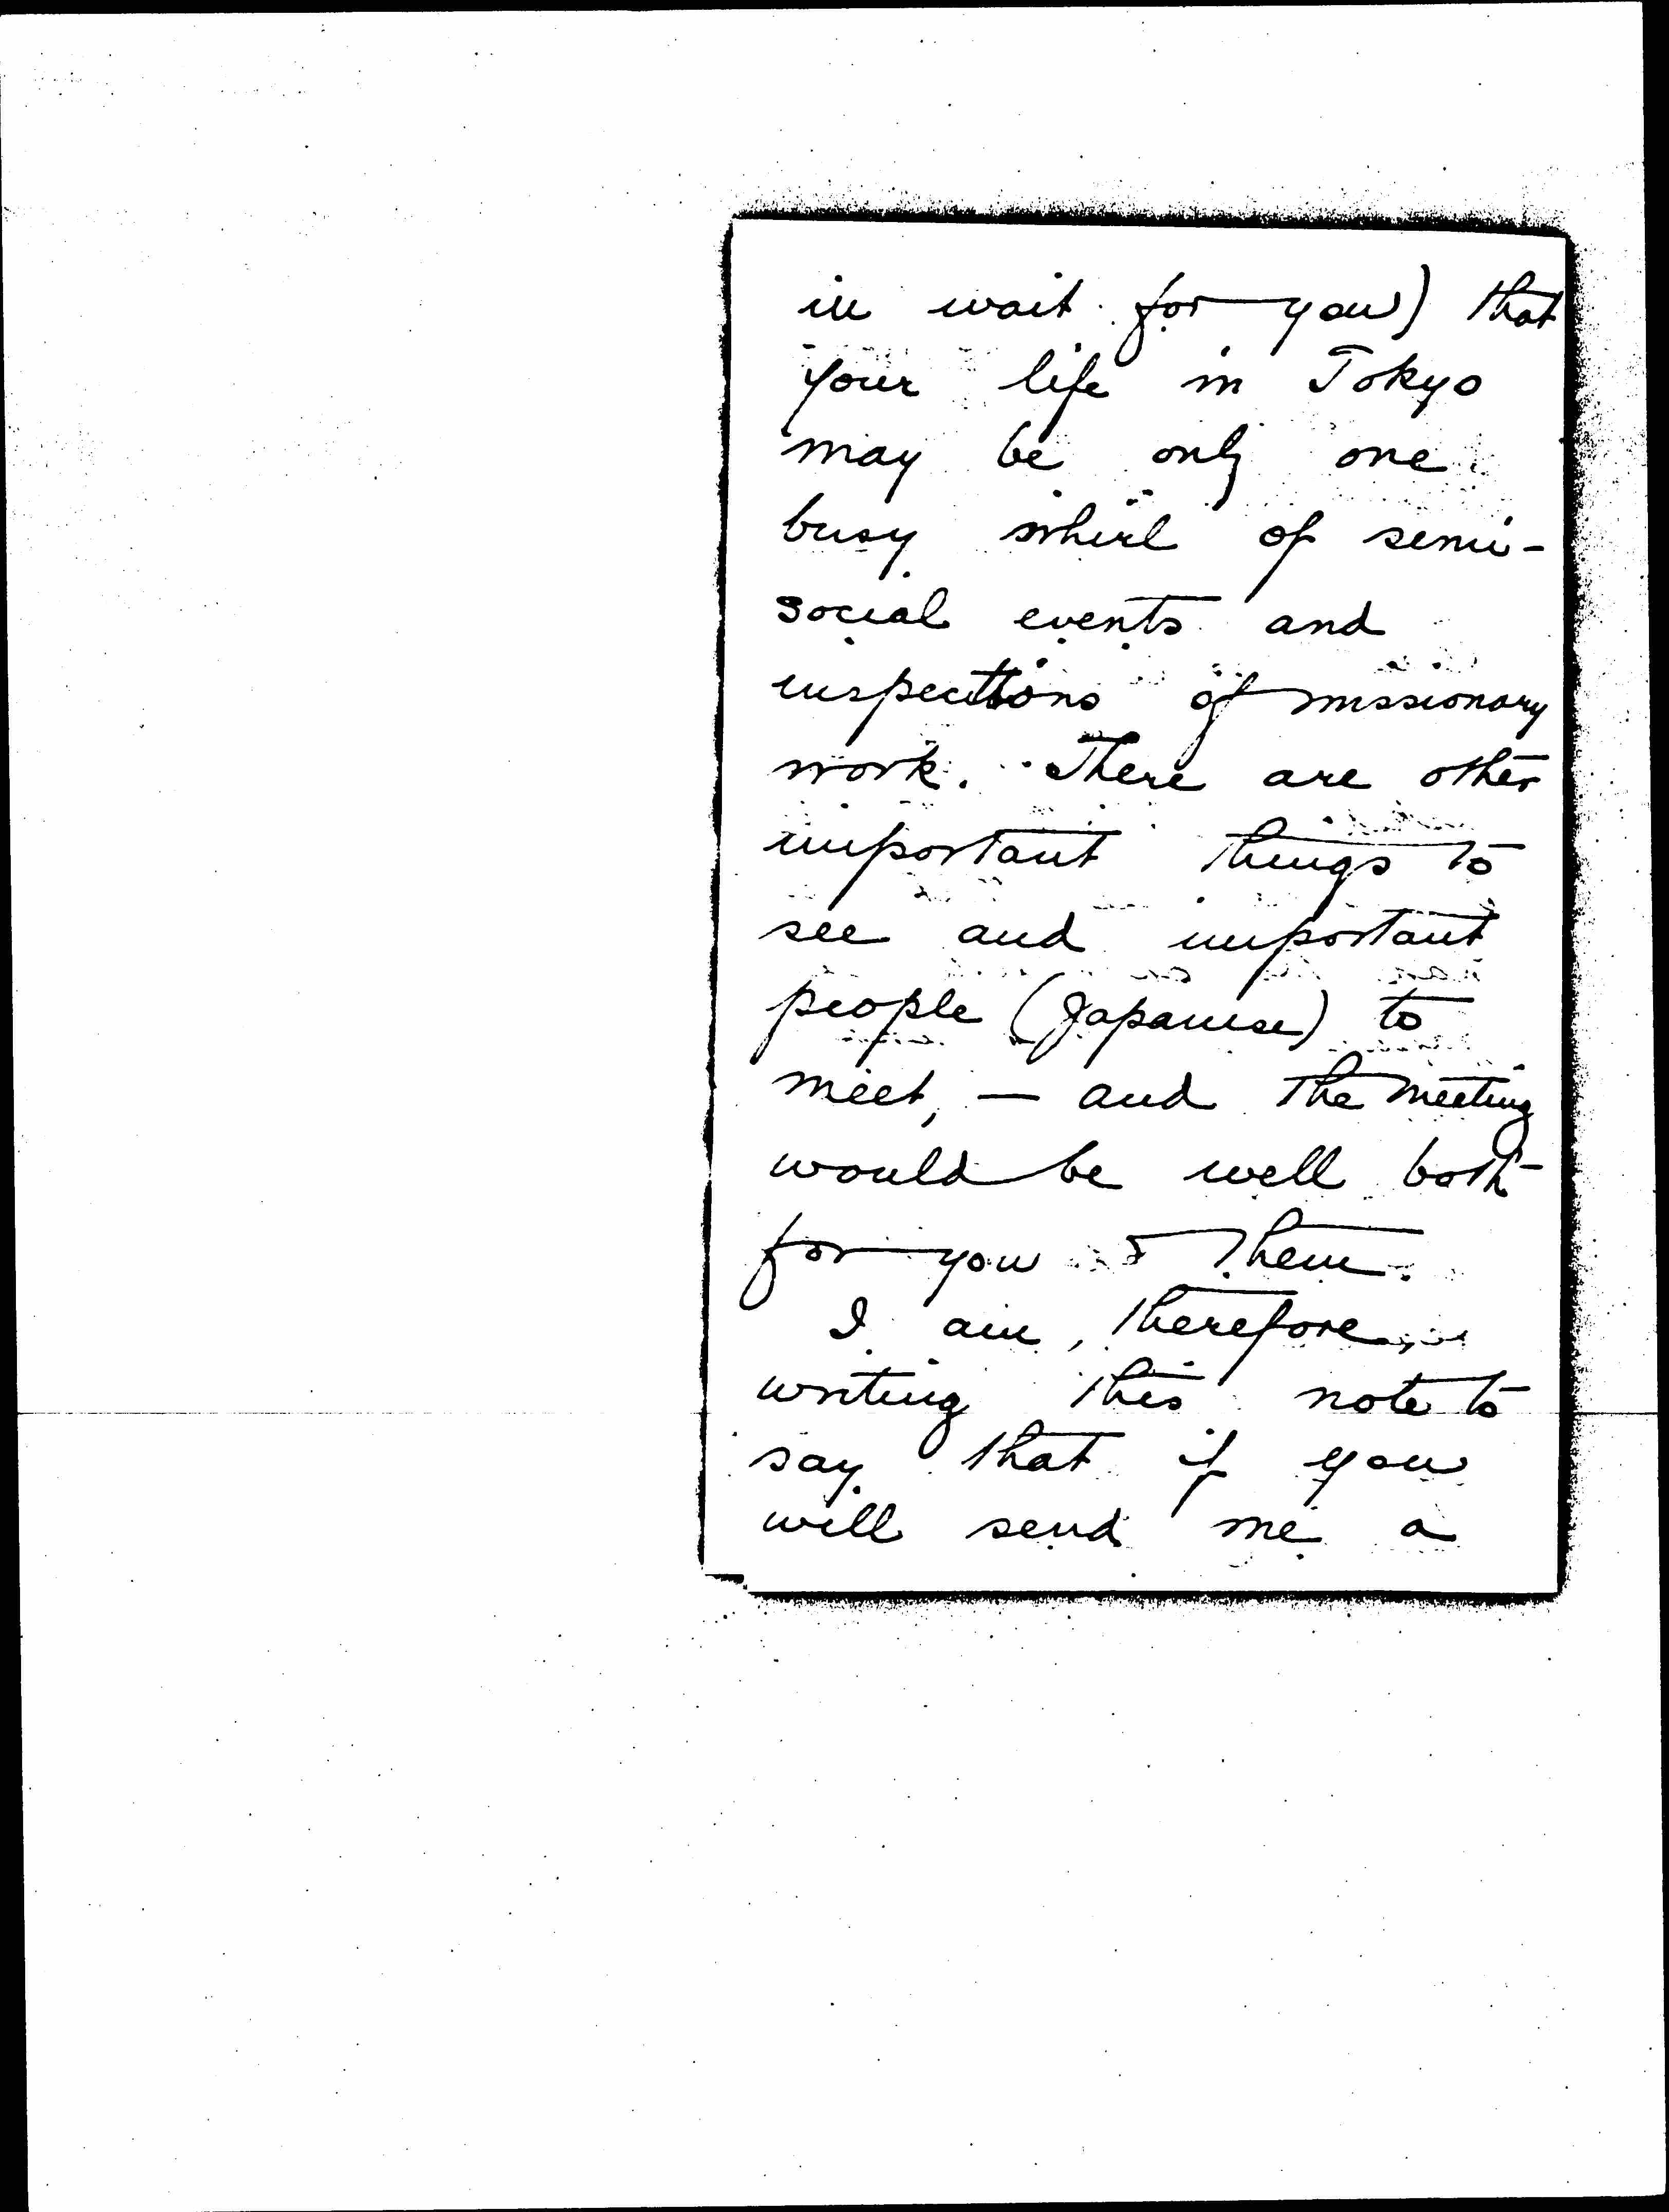 in wait for you) that
your life in Tokyo
may be only one
busy whirl of semi-
social events and
inspections of missionary
work. There are other
important things to
see and important
people (Japanese) to
meet, — and the meeting
would be well both
for you & them.
I am, therefore,
writing this note to
say that if you
will send me a